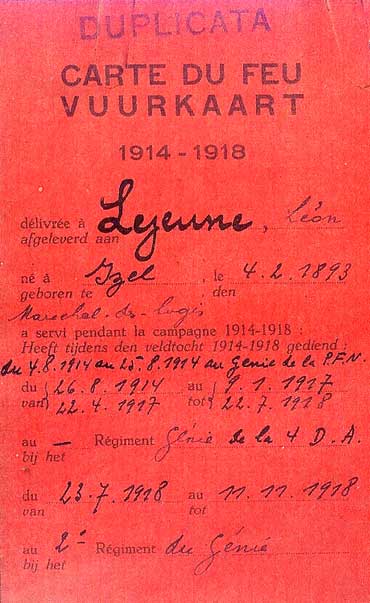 DUPLICATA
CARTE DU FEU
VUURKAART
1914-1918
délivrée à Lejeune, Léon
afgeleverd aan
né à Izel, le 4.2.1893
geboren te den
Marechal-des-logis
a servi pendant la campagne 1914-1918 :
Heeft tijdens den veldtocht 1914-1918 gediend :
du 4.8.1914 au 25-8.1914 au Génie de la P.F.N.
du (26.8.1914 au (9.1.1917
van) 22.4.1917 tot) 22.7.1918
au — Régiment Génie de la 4 D.A.
bij het
du 23.7.1918 au 11.11.1918
van tot
au 2e Régiment du Génie
bij het